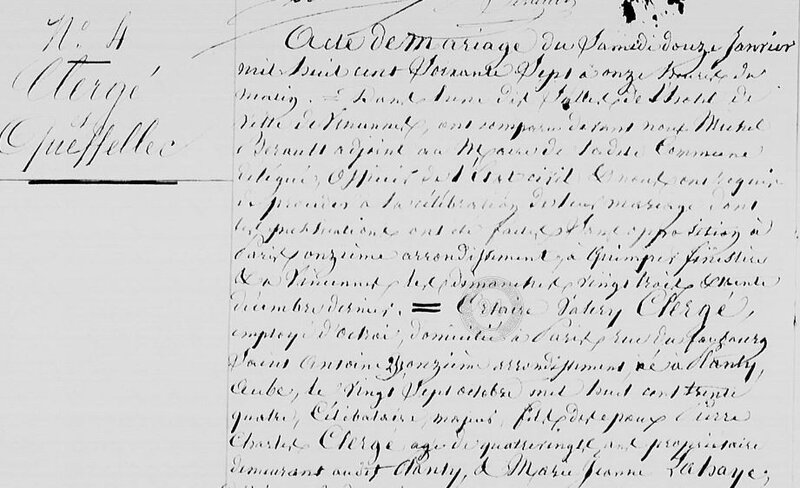 N.º 4
Clergé
et
Queffellec
Acte de mariage du Samedi douze Janvier
mil huit cent Soixante Sept à onze heures du
matin. = Dans l'une des Salles de l'hotel de
Ville de Vincennes, ont comparu devant nous Michel
adjoint au Maire de ladite Commune
délégué, Officier de l'Etat civil & nous ont requis
de procéder à la célébration de leur mariage dont
les publications ont été faites Sans opposition à
Paris onzième arrondissement, à Quimper finistère
& à Vincennes les dimanches vingt trois & trente
décembre dernier. = Valery Clergé,
employé d'octroi, domicilié à Paris rue du faubourg
Saint Antoine onzième arrondissement né à Clanty,
Aube, le vingt Sept octobre mil huit cent trente
quatre, Célibataire, majeur, fils des époux Pierre
Charles Clergé âgé de quatrevingts ans propriétaire
demeurant audit Clanty, & Marie Jeanne Lahaye;